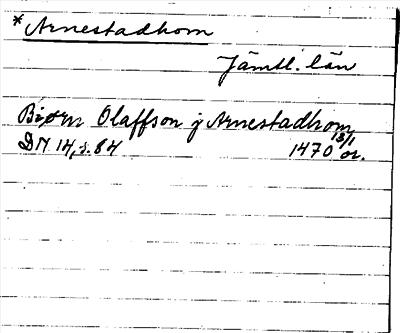 *Arnestadhom
Jämtl. län
Biørn Olaffson j Arnestadhom
DN 14, s. 84 1470 13/1 or.